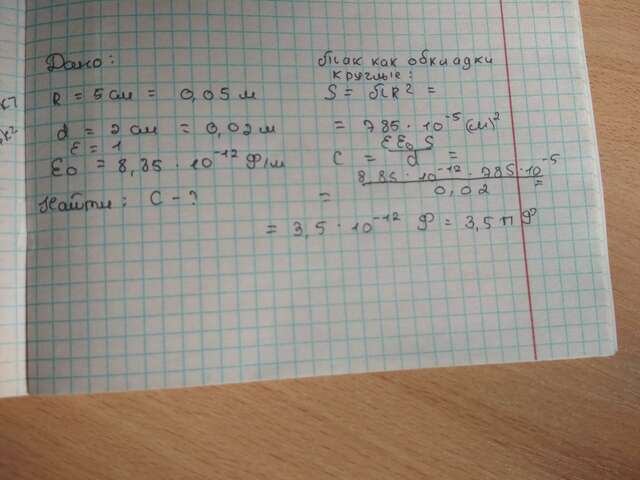 Дано:
R = 5 см = 0,05 м
d = 2 см = 0,02 м
ε = 1
ε0 = 8,85 · 10^-12 Ф/м
Найти: C - ?
Так как обкладки
круглые:
S = πR² =
= 785 · 10^-5 (м)²
C = εε0 S / d =
= 8,85 · 10^-12 · 785 · 10^-5 / 0,02 =
= 3,5 · 10^-12 Ф = 3,5 п Ф